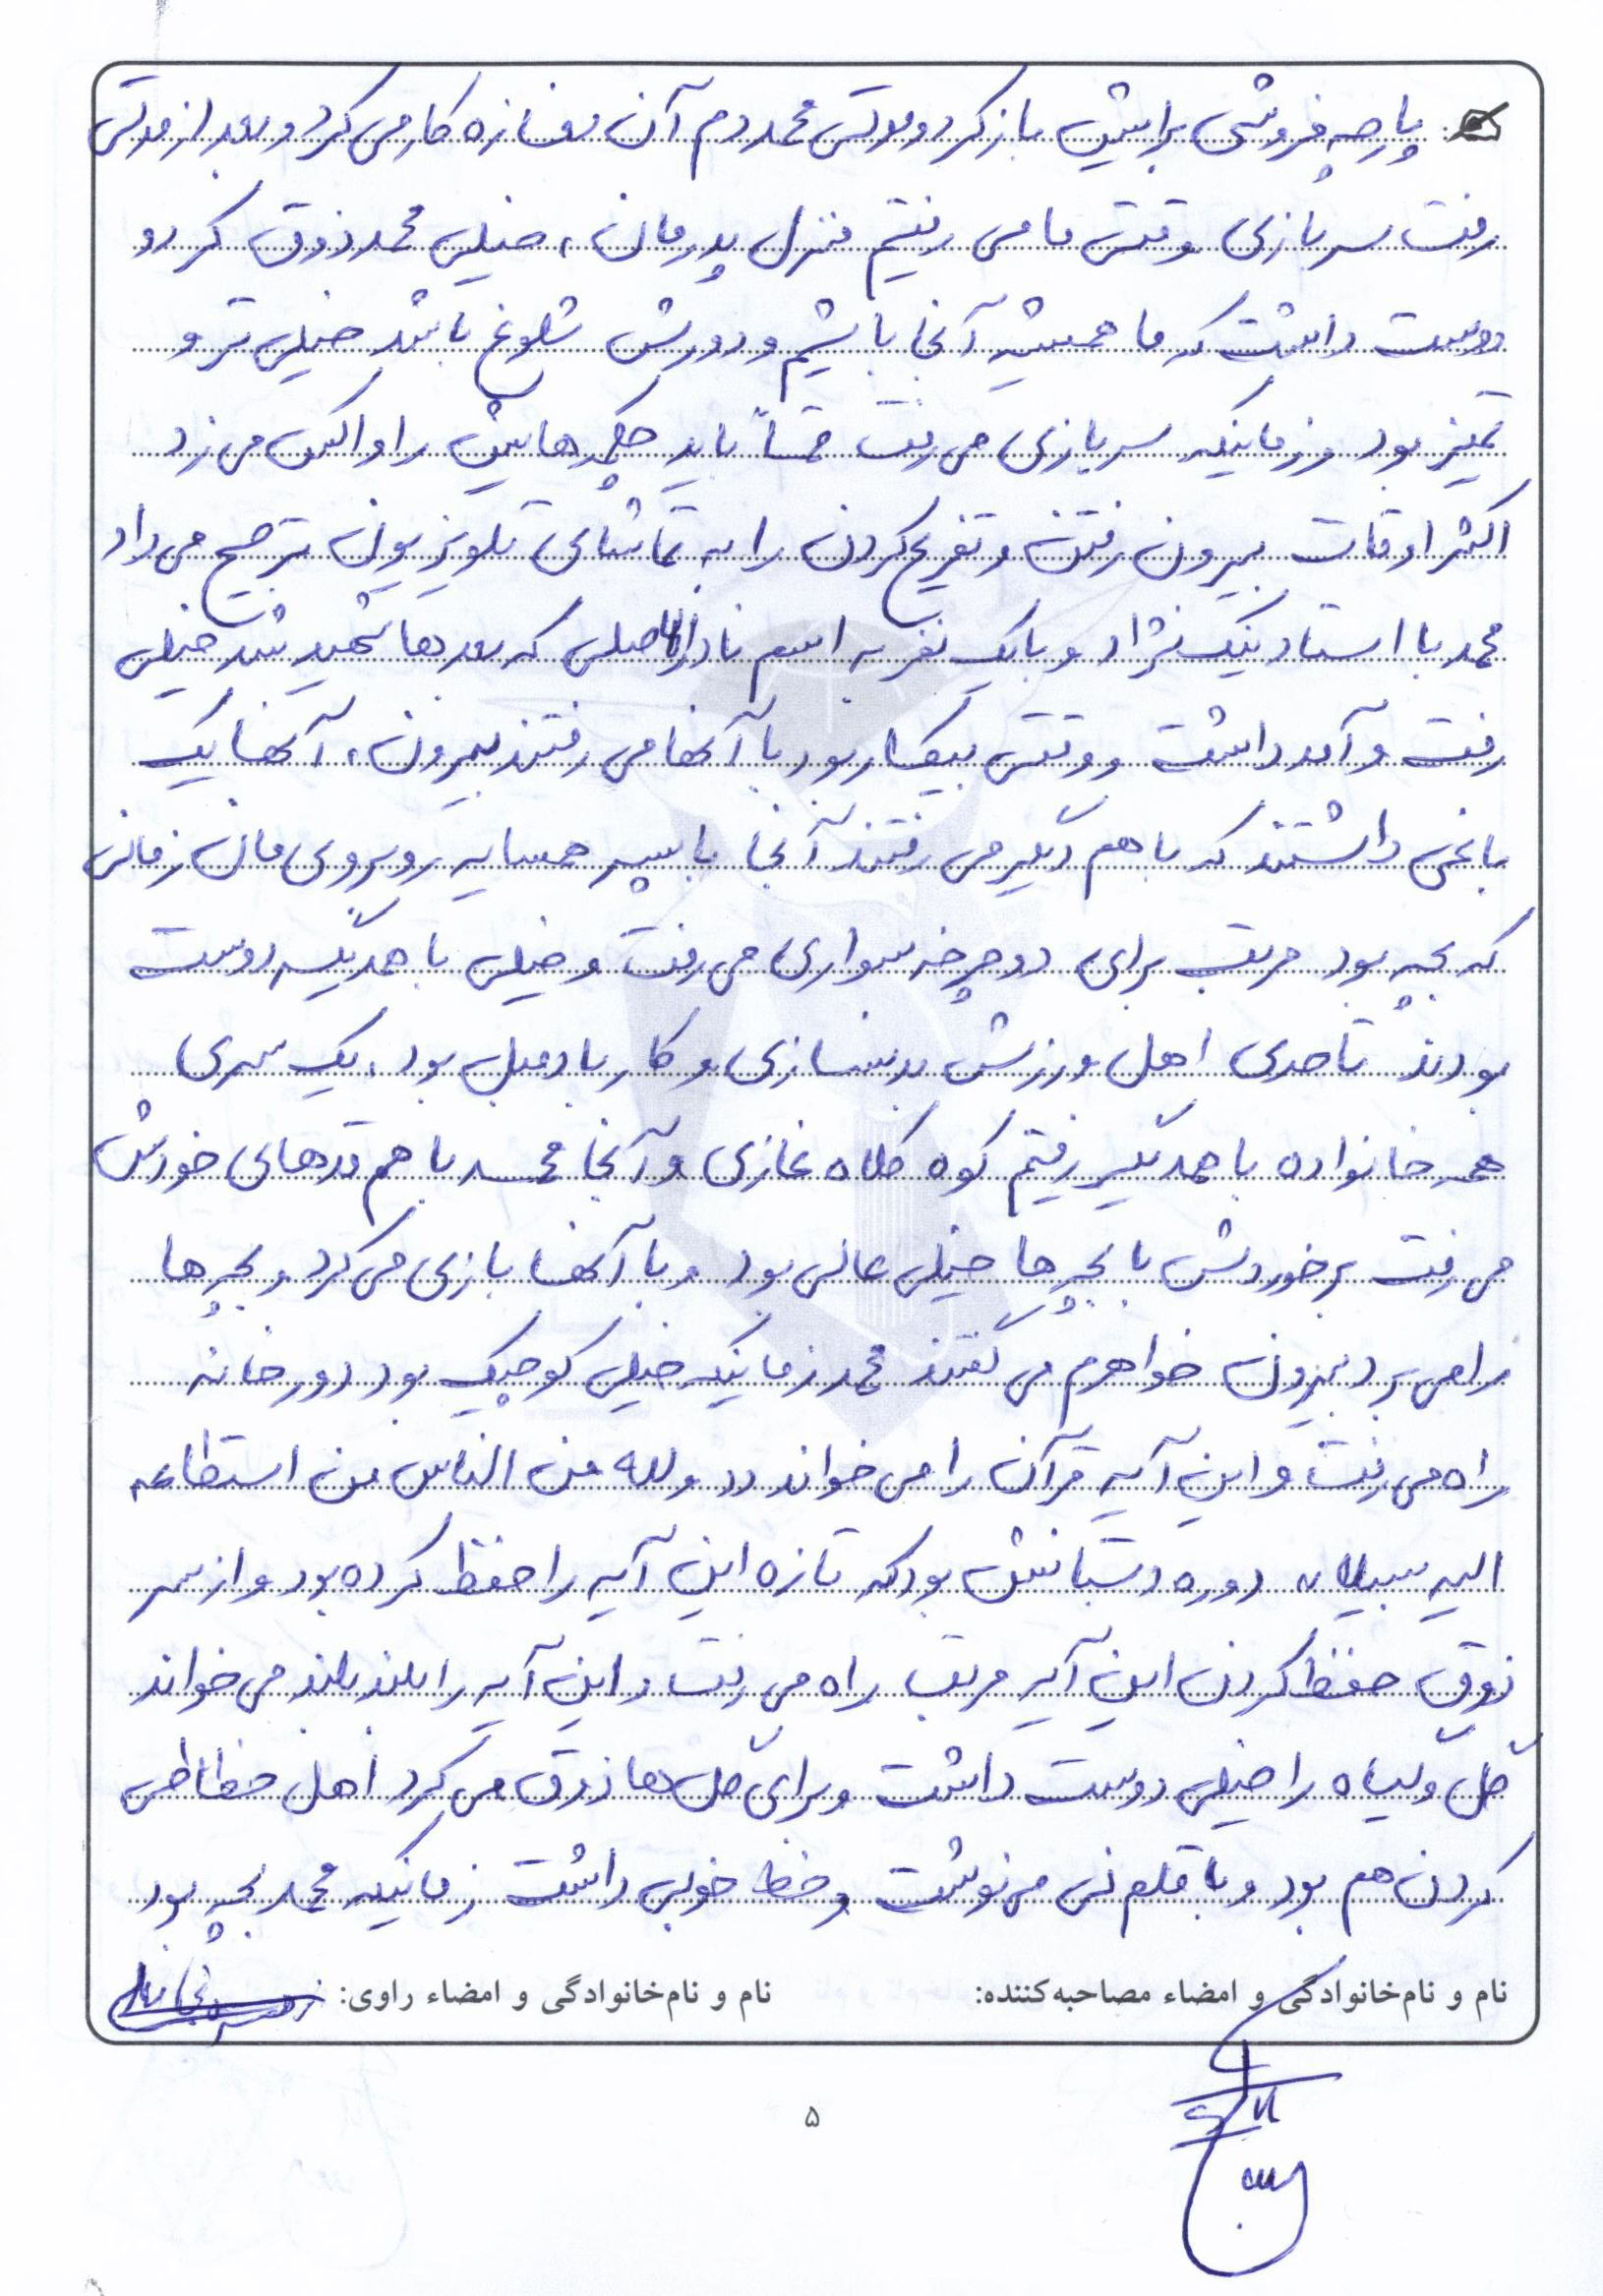 پارچه فروشی برایش باز کرد و مدتی محمد دم آن مغازه کار می کرد و بعد از مدتی
رفت سربازی وقتی ما می رفتیم منزل پدرمان ، خیلی محمد ذوق کرد و
دوست داشت که ما همیشه آنجا باشیم و دورش شلوغ باشد خیلی تر و
تمیز بود و زمانیکه سربازی می رفت حتماً باید چکمه هایش را واکس می زد
اکثر اوقات بیرون رفتن و تفریح کردن را به تماشای تلویزیون ترجیح می داد
محمد با استاد نیک نژاد و با یک نفر به اسم نادر اصلی که بعدها شهید شد خیلی
رفت و آمد داشت و وقتی بیکار بود با آنها می رفتند بیرون ، آنها یک
باغی داشتند که با هم دیگر می رفتند آنجا با پسر همسایه روبروی مان زمانی
که بچه بود مرتب برای دوچرخه سواری می رفت و خیلی با همدیگر دوست
بودند تا حدی اهل ورزش بدنسازی و کار با دمبل بود . یک سری
همه خانواده با همدیگر رفتیم کوه کلاه غازی و آنجا محمد با هم قدهای خودش
می رفت برخوردش با بچه ها خیلی عالی بود و با آنها بازی می کرد و بچه ها
را می برد بیرون خواهرم می گفتند محمد زمانیکه خیلی کوچیک بود دور خانه
راه می رفت و این آیه قرآن را می خواند «ولله من الناس من استطاعه
الیه سبیلا» دوره دبستانش بود که تازه این آیه را حفظ کرده بود و از سر
ذوق حفظ کردن این آیه مرتب راه می رفت و این آیه را بلند بلند می خواند
گل و گیاه را خیلی دوست داشت و برای گل ها ذوق می کرد اهل خطاطی
کردن هم بود و با قلم نی می نوشت و خط خوبی داشت زمانیکه محمد بچه بود
نام و نام‌خانوادگی و امضاء مصاحبه‌کننده: نام و نام‌خانوادگی و امضاء راوی:
۵